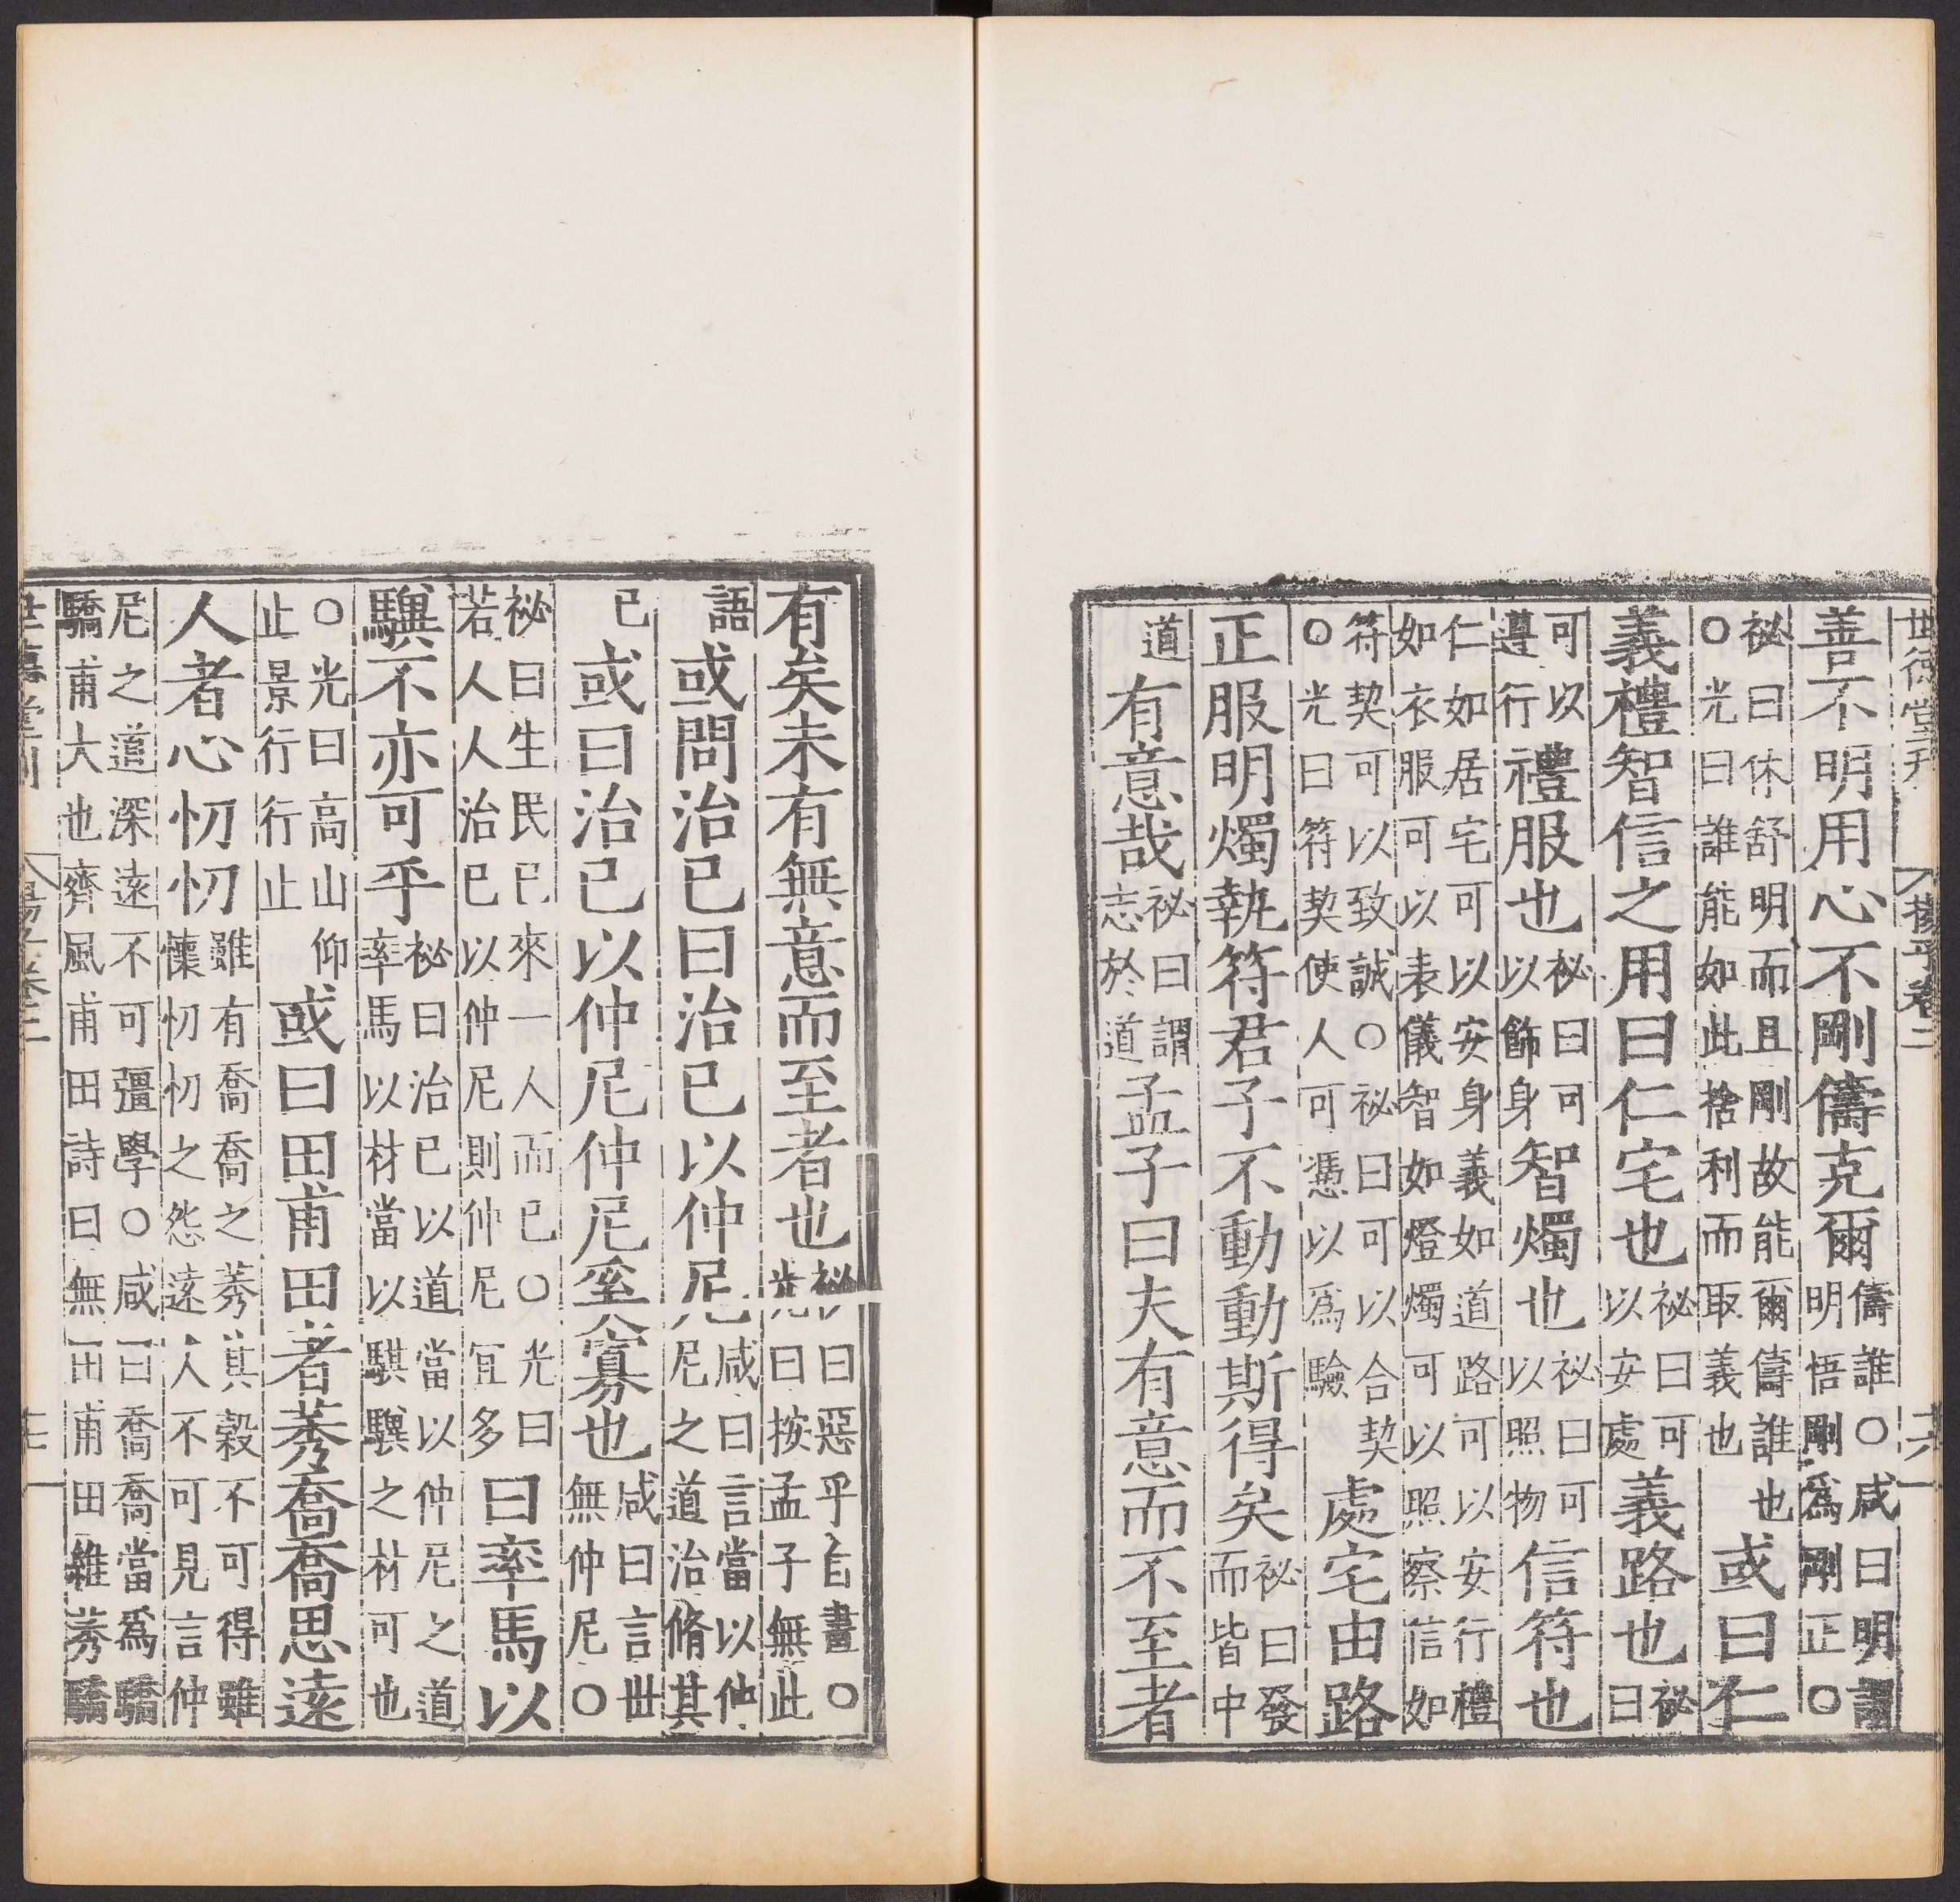 世德堂刊
揚子卷二
十六
善不明用心不剛儔克爾儔誰○咸曰明謂
明悟剛爲剛正○
祕曰休舒明而且剛故能爾儔誰也
○光曰誰能如此捨利而取義也
或曰仁
義禮智信之用曰仁宅也祕曰可
以安處義路也祕
曰
可以
遵行禮服也祕曰可
以飾身智燭也祕曰可
以照物信符也
仁如居宅可以安身義如道路可以安行禮
如衣服可以表儀智如燈燭可以照察信如
符契可以致誠○祕曰可以合契
○光曰符契使人可憑以爲驗
處宅由路
正服明燭執符君子不動動斯得矣祕曰發
而皆中
道
有意哉祕曰謂
志於道孟子曰夫有意而不至者
有矣未有無意而至者也祕曰惡乎自畫○
光曰按孟子無此
語
或問治已曰治已以仲尼咸曰言當以仲
尼之道治脩其
已
或曰治已以仲尼仲尼奚寡也咸曰言世
無仲尼○
祕曰生民已來一人而已○光曰
若人人治已以仲尼則仲尼宜多
曰率馬以
驥不亦可乎祕曰治已以道當以仲尼之道
率馬以材當以騏驥之材可也
○光曰高山仰
止景行行止
或曰田甫田者莠喬喬思遠
人者心忉忉雖有喬喬之莠其穀不可得雖
懷忉忉之怨遠人不可見言仲
尼之道深遠不可彊學○咸曰喬喬當爲驕
驕甫大也齊風甫田詩曰無田甫田維莠驕
世德堂刊
揚子卷二